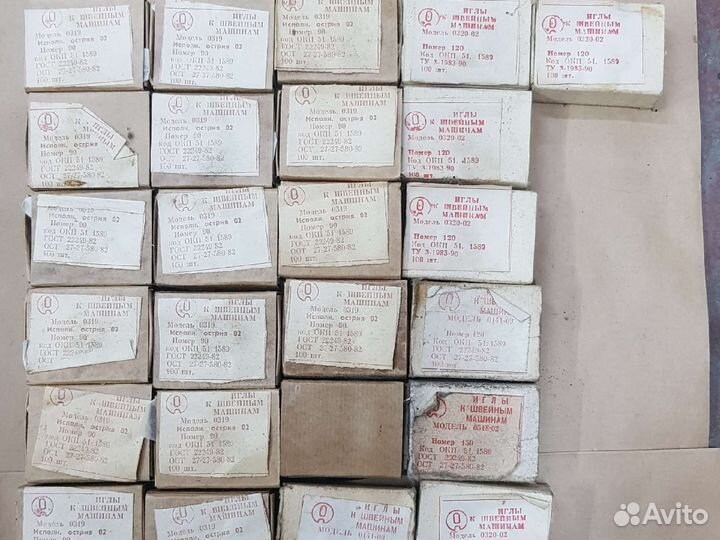 ИГЛЫ
К ШВЕЙНЫМ
МАШИНАМ
Модель 0319
Исполн. острия 02
Номер 90
код ОКП 51 1589
ГОСТ 22249-82
ОСТ 27-27-580-82
100 шт.
К ШВЕЙНЫМ
МАШИНАМ
Модель 0319
Исполн. острия 02
Номер 90
код ОКП 51 1589
ГОСТ 22249-82
ОСТ 27-27-580-82
100 шт.
МАШИНАМ
Модель 0319
Исполн. острия 02
Номер 90
код ОКП 51 1589
ГОСТ 22249-82
ОСТ 27-27-580-82
100 шт.
ИГЛЫ
К ШВЕЙНЫМ
МАШИНАМ
Модель 0320-02
Номер 120
Код ОКП 51. 1589
ТУ 3-1983-90
100 шт.
ИГЛЫ
К ШВЕЙНЫМ
МАШИНАМ
Модель 0320-02
Номер 120
Код ОКП 51. 1589
ТУ 3-1983-90
100 шт.
Модель 0319
Исполн. острия 02
Номер 90
код ОКП 51 1589
ГОСТ 22249-82
ОСТ 27-27-580-82
100 шт.
ИГЛЫ
К ШВЕЙНЫМ
МАШИНАМ
Модель 0319
Исполн. острия 02
Номер 90
код ОКП 51 1589
ГОСТ 22249-82
ОСТ 27-27-580-82
100 шт.
ИГЛЫ
К ШВЕЙНЫМ
МАШИНАМ
Модель 0319
Исполн. острия 02
Номер 90
код ОКП 51 1589
ГОСТ 22249-82
ОСТ 27-27-580-82
100 шт.
ИГЛЫ
К ШВЕЙНЫМ
МАШИНАМ
Модель 0320-02
Номер 120
Код ОКП 51. 1589
ТУ 3-1983-90
100 шт.
Модель 0319
Исполн. острия 02
Номер 90
код ОКП 51 1589
ГОСТ 22249-82
ОСТ 27-27-580-82
100 шт.
ИГЛЫ
К ШВЕЙНЫМ
МАШИНАМ
Модель 0319
Исполн. острия 02
Номер 90
код ОКП 51 1589
ГОСТ 22249-82
ОСТ 27-27-580-82
100 шт.
ИГЛЫ
К ШВЕЙНЫМ
МАШИНАМ
Модель 0319
Исполн. острия 02
Номер 90
код ОКП 51 1589
ГОСТ 22249-82
ОСТ 27-27-580-82
100 шт.
ИГЛЫ
К ШВЕЙНЫМ
МАШИНАМ
Модель 0320-02
Номер 120
Код ОКП 51. 1589
ТУ 3-1983-90
100 шт.
ИГЛЫ
К ШВЕЙНЫМ
МАШИНАМ
Модель 0319
Исполн. острия 02
Номер 90
код ОКП 51 1589
ГОСТ 22249-82
ОСТ
ИГЛЫ
К ШВЕЙНЫМ
МАШИНАМ
Модель 0319
Исполн. острия 02
Номер 90
код ОКП 51 1589
ГОСТ 22249-82
ОСТ 27-27-580-82
100 шт.
ИГЛЫ
К ШВЕЙНЫМ
МАШИНАМ
Модель 0319
Исполн. острия 02
Номер 90
код ОКП 51 1589
ГОСТ 22249-82
ОСТ 27-27-580-82
100 шт.
К ШВЕЙ
МАШИНАМ
МОДЕЛЬ 0141-09
Номер 120
код ОКП 51. 1589
ГОСТ 22249-82
ОСТ 27-27-580-82
ИГЛЫ
К ШВЕЙНЫМ
МАШИНАМ
Модель 0319
Исполн. острия 02
Номер 90
код ОКП 51 1589
ГОСТ 22249-82
ОСТ 27-27-580-82
100 шт.
ИГЛЫ
К ШВЕЙНЫМ
МАШИНАМ
Модель 0319
Исполн. острия 02
Номер 90
код ОКП 51 1589
ГОСТ 22249-82
ОСТ 27-27-580-82
100 шт.
ИГЛЫ
К ШВЕЙНЫМ
МАШИНАМ
МОДЕЛЬ 0518-02
Номер 150
код ОКП 51. 1589
ГОСТ 22249-82
ОСТ 27-27-580-82
ИГЛЫ
К ШВЕЙНЫМ
МАШИНАМ
Модель 0319
Исполн. острия 02
ИГЛЫ
К ШВЕЙНЫМ
МАШИНАМ
Модель 0319
Исполн. острия 02
ИГЛЫ
К ШВЕЙНЫМ
МАШИНАМ
МОДЕЛЬ 0141-09
ИГЛЫ
К ШВЕЙНЫМ
МАШИНАМ
Модель 0320-02
Avito